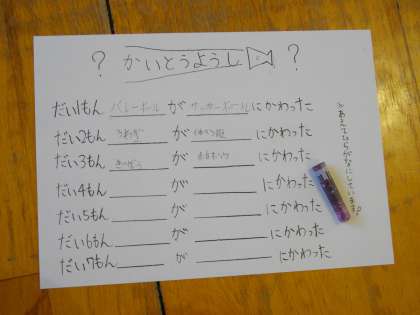 ? かいとうようし ?
だい1もん バレーボール が サッカーボール にかわった
だい2もん うわぎ が にかわった
だい3もん きっぷう が にかわった
だい4もん ＿＿＿ が ＿＿＿ にかわった
だい5もん ＿＿＿ が ＿＿＿ にかわった
だい6もん ＿＿＿ が ＿＿＿ にかわった
だい7もん ＿＿＿ が ＿＿＿ にかわった
※あえてひらがなにしています。